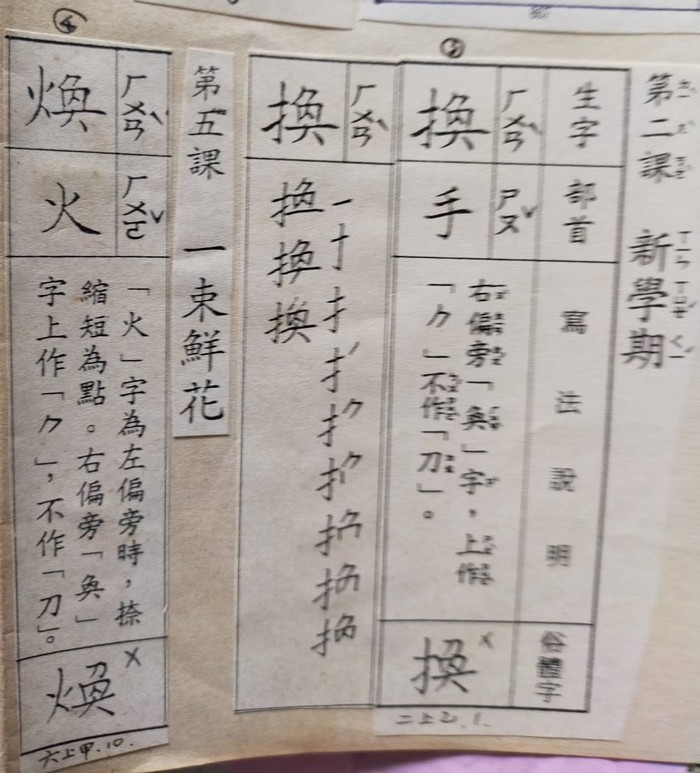 ③
第二課 新學期
ㄉㄧˋ ㄦˋ ㄎㄜˋ ㄒㄧㄣ ㄒㄩㄝˊ ㄑㄧˊ
生字
部首
寫法說明
俗體字
ㄏㄨㄢˋ
換
ㄕㄡˇ
手
右偏旁「奐」字，上作
「⺈」不作「刀」。
換
×
二上乙.1.
ㄏㄨㄢˋ
換
換
換
換
④
第五課 一束鮮花
ㄏㄨㄢˋ
煥
ㄏㄨㄛˇ
火
「火」字為左偏旁時，捺
縮短為點。右偏旁「奐」
字上作「⺈」，不作「刀」。
煥
×
六上甲.10.